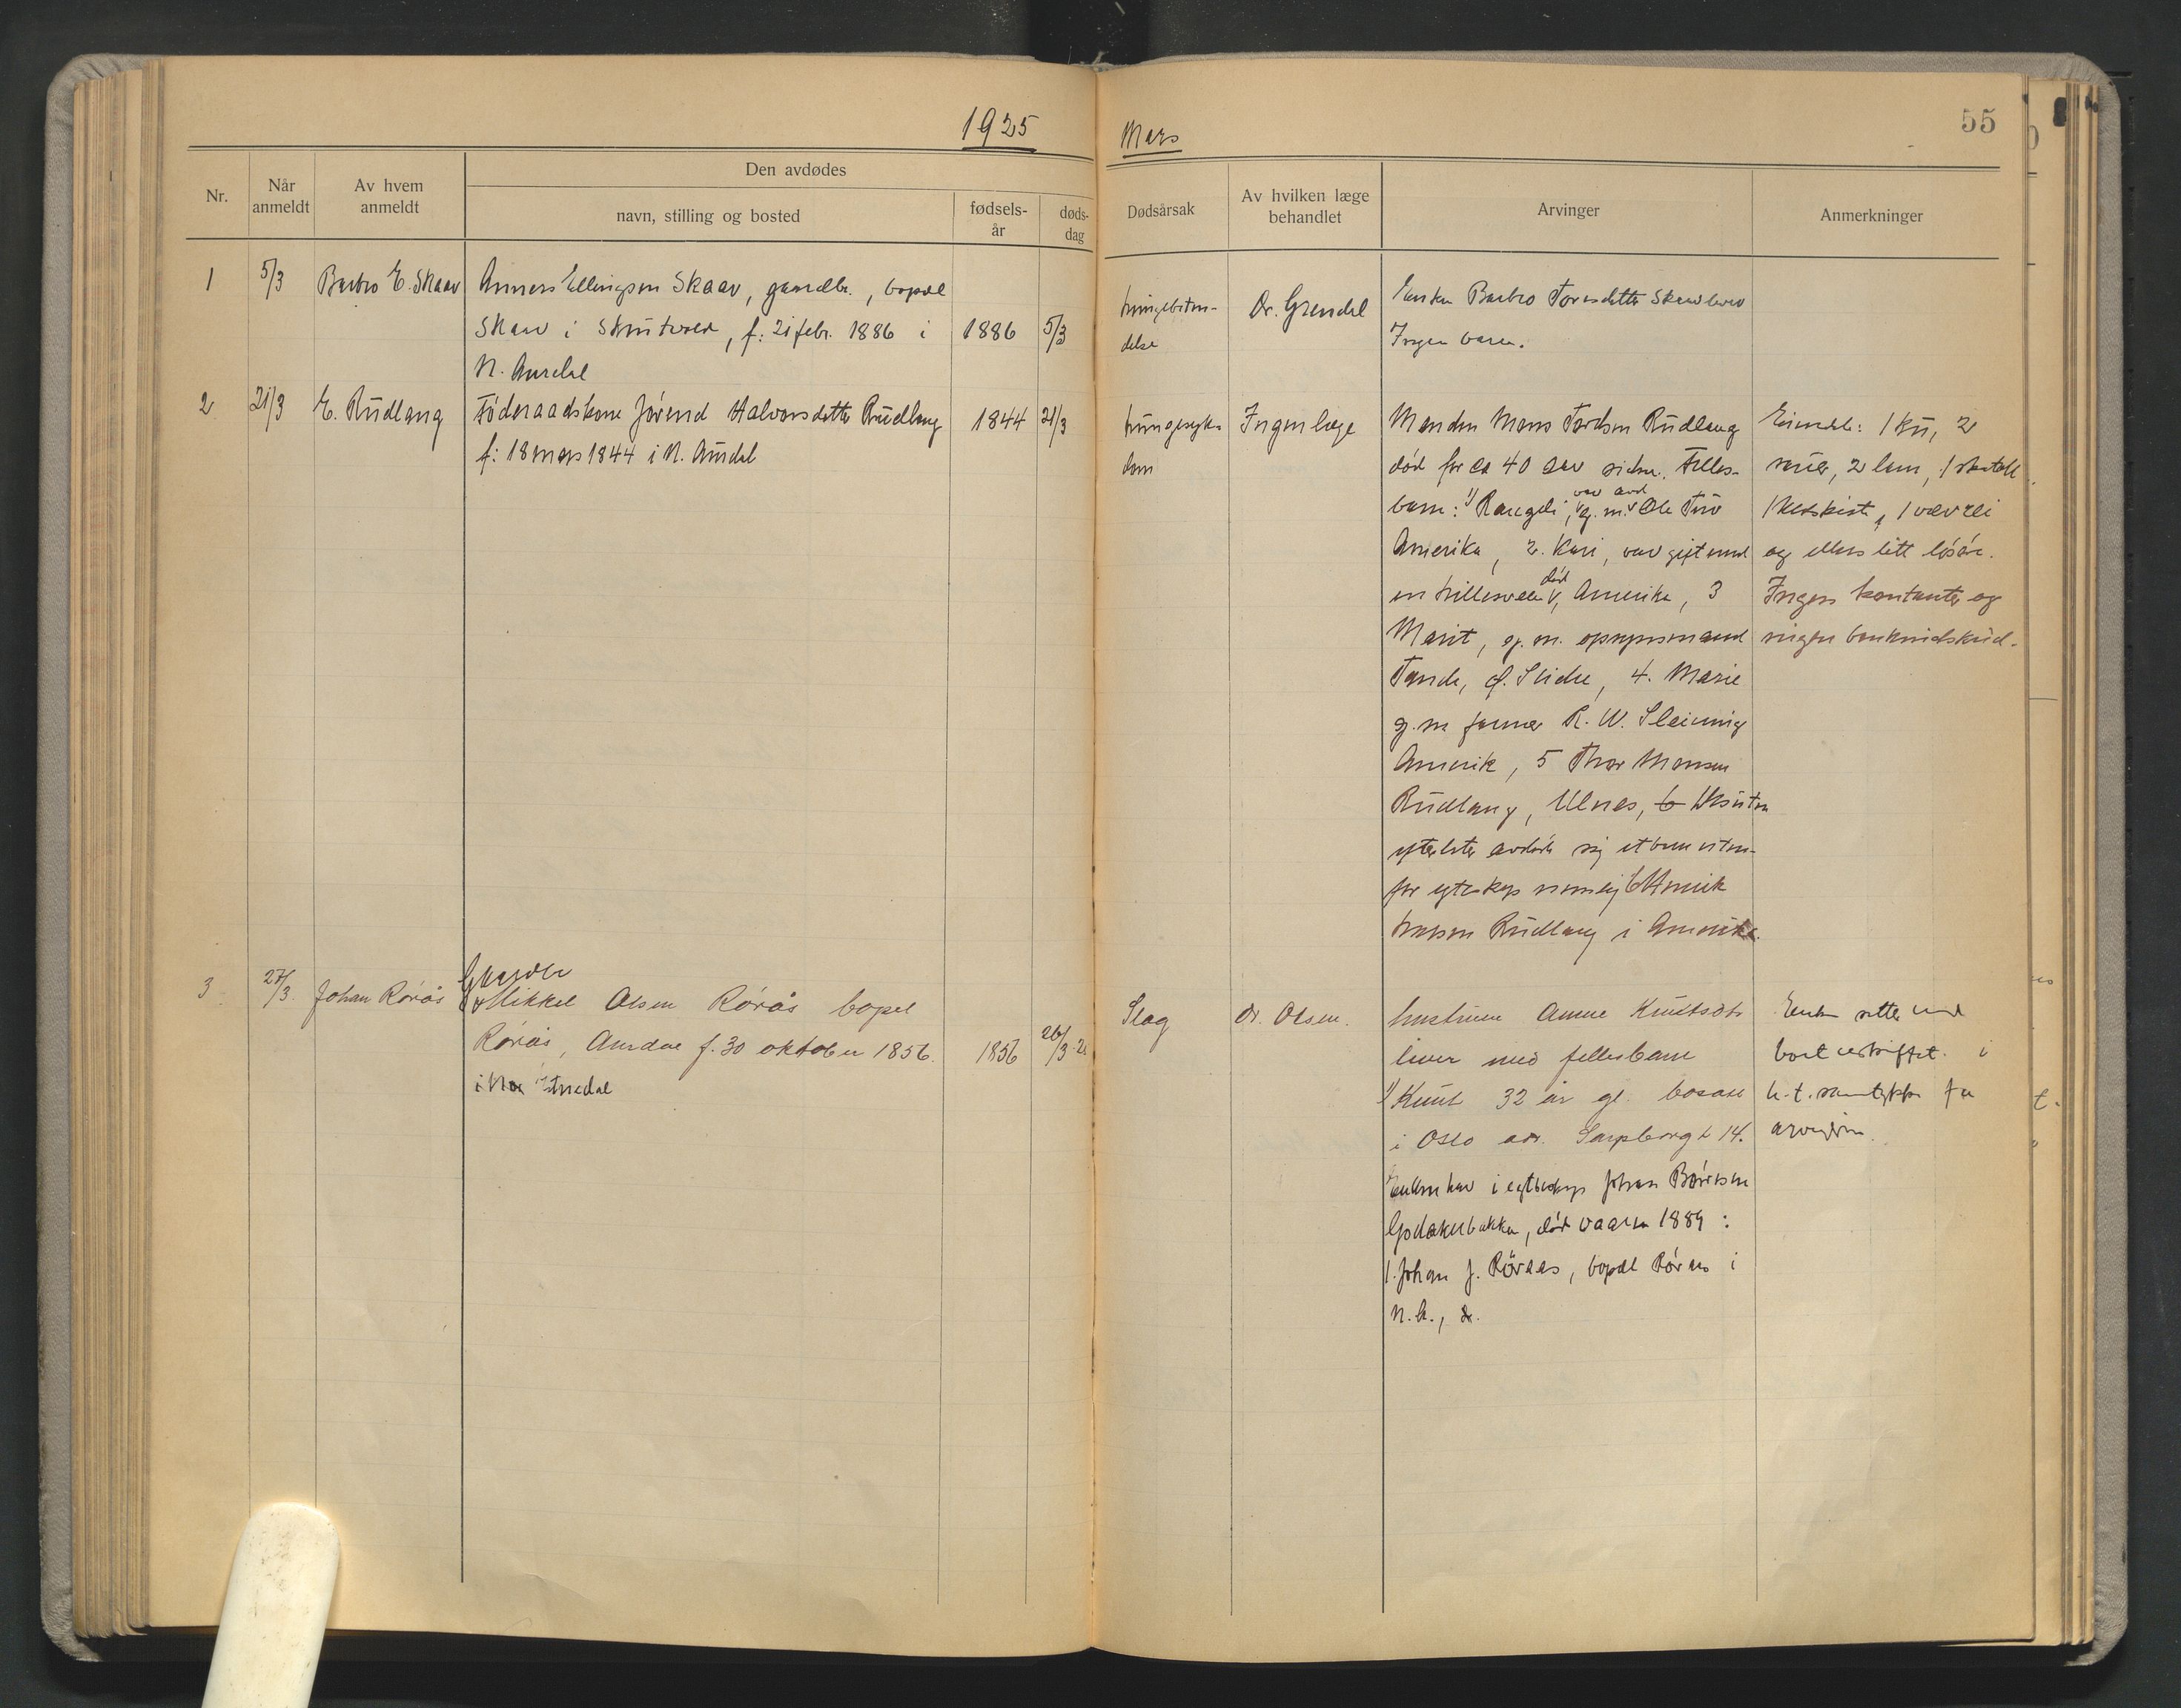 1925
Mars
55
Nr.
Når anmeldt
Av hvem anmeldt
Den avdødes
navn, stilling og bosted
fødsels-
år
døds-
dag
Dødsårsak
Av hvilken læge
behandlet
Arvinger
Anmerkninger
1
5/3
Barbro E. Skaar
Anners Ellingsen Skaar, gaardbr., bopæl
Skaar i Skrutvold, f: 21 febr. 1886 i
N. Aurdal
1886
5/3
lungebeten-
delse
Dr. Grendal
Enken Barbro Toresdatter Skaar lever
Ingen barn.
2
21/3
E. Rudlang
Føderaadskone Jørend Halvorsdatter Rudlang
f: 18 mars 1844 i N. Aurdal
1844
21/3
lungesyk-
dom
Ingen læge
Manden Mons Rudlang
død for ca 40 aar siden. Felles-
barn: 1) Rangdi, var g.m. Ole
Amerika, 2. Kari, var gift med
en død, Amerika, 3
Marit, g. m. opsynsmand
Tande, Ø. Slidre, 4. Marie
g. m farmer R. W.
Amerik, 5 Thor Monsen
Rudlang, Ulnes, 6 Desuten
efterlater avdøde sig et barn uten-
for egteskap nemlig 6)
Rudlang i Amerika.
Eiendele: 1 ku, 2
sauer, 2 lam,
1 vævrei
og ellers litt løsøre.
Ingen kontanter og
ingen bankinskud.
3
27/3.
Johan Rørås
Gaardbr
Mikkel Olsen Rørås bopæl
Rørås, Aurdal f. 30 oktober 1856.
i Etnedal
1856
26/3
Slag
dr. Olsen.
hustruen Anne Knutsdtr
lever med fellesbarn
1) Knut 32 år gl. bosatt
i Oslo adr. Sarpborg 14.
Enken har i egteskap Johan
død vaaren 1889:
1. Johan J. Røraas, bopæl Røraas i
N. A.,
Enken sitter med
boet uskiftet i
h.t. samtykke fra
arvingerne.